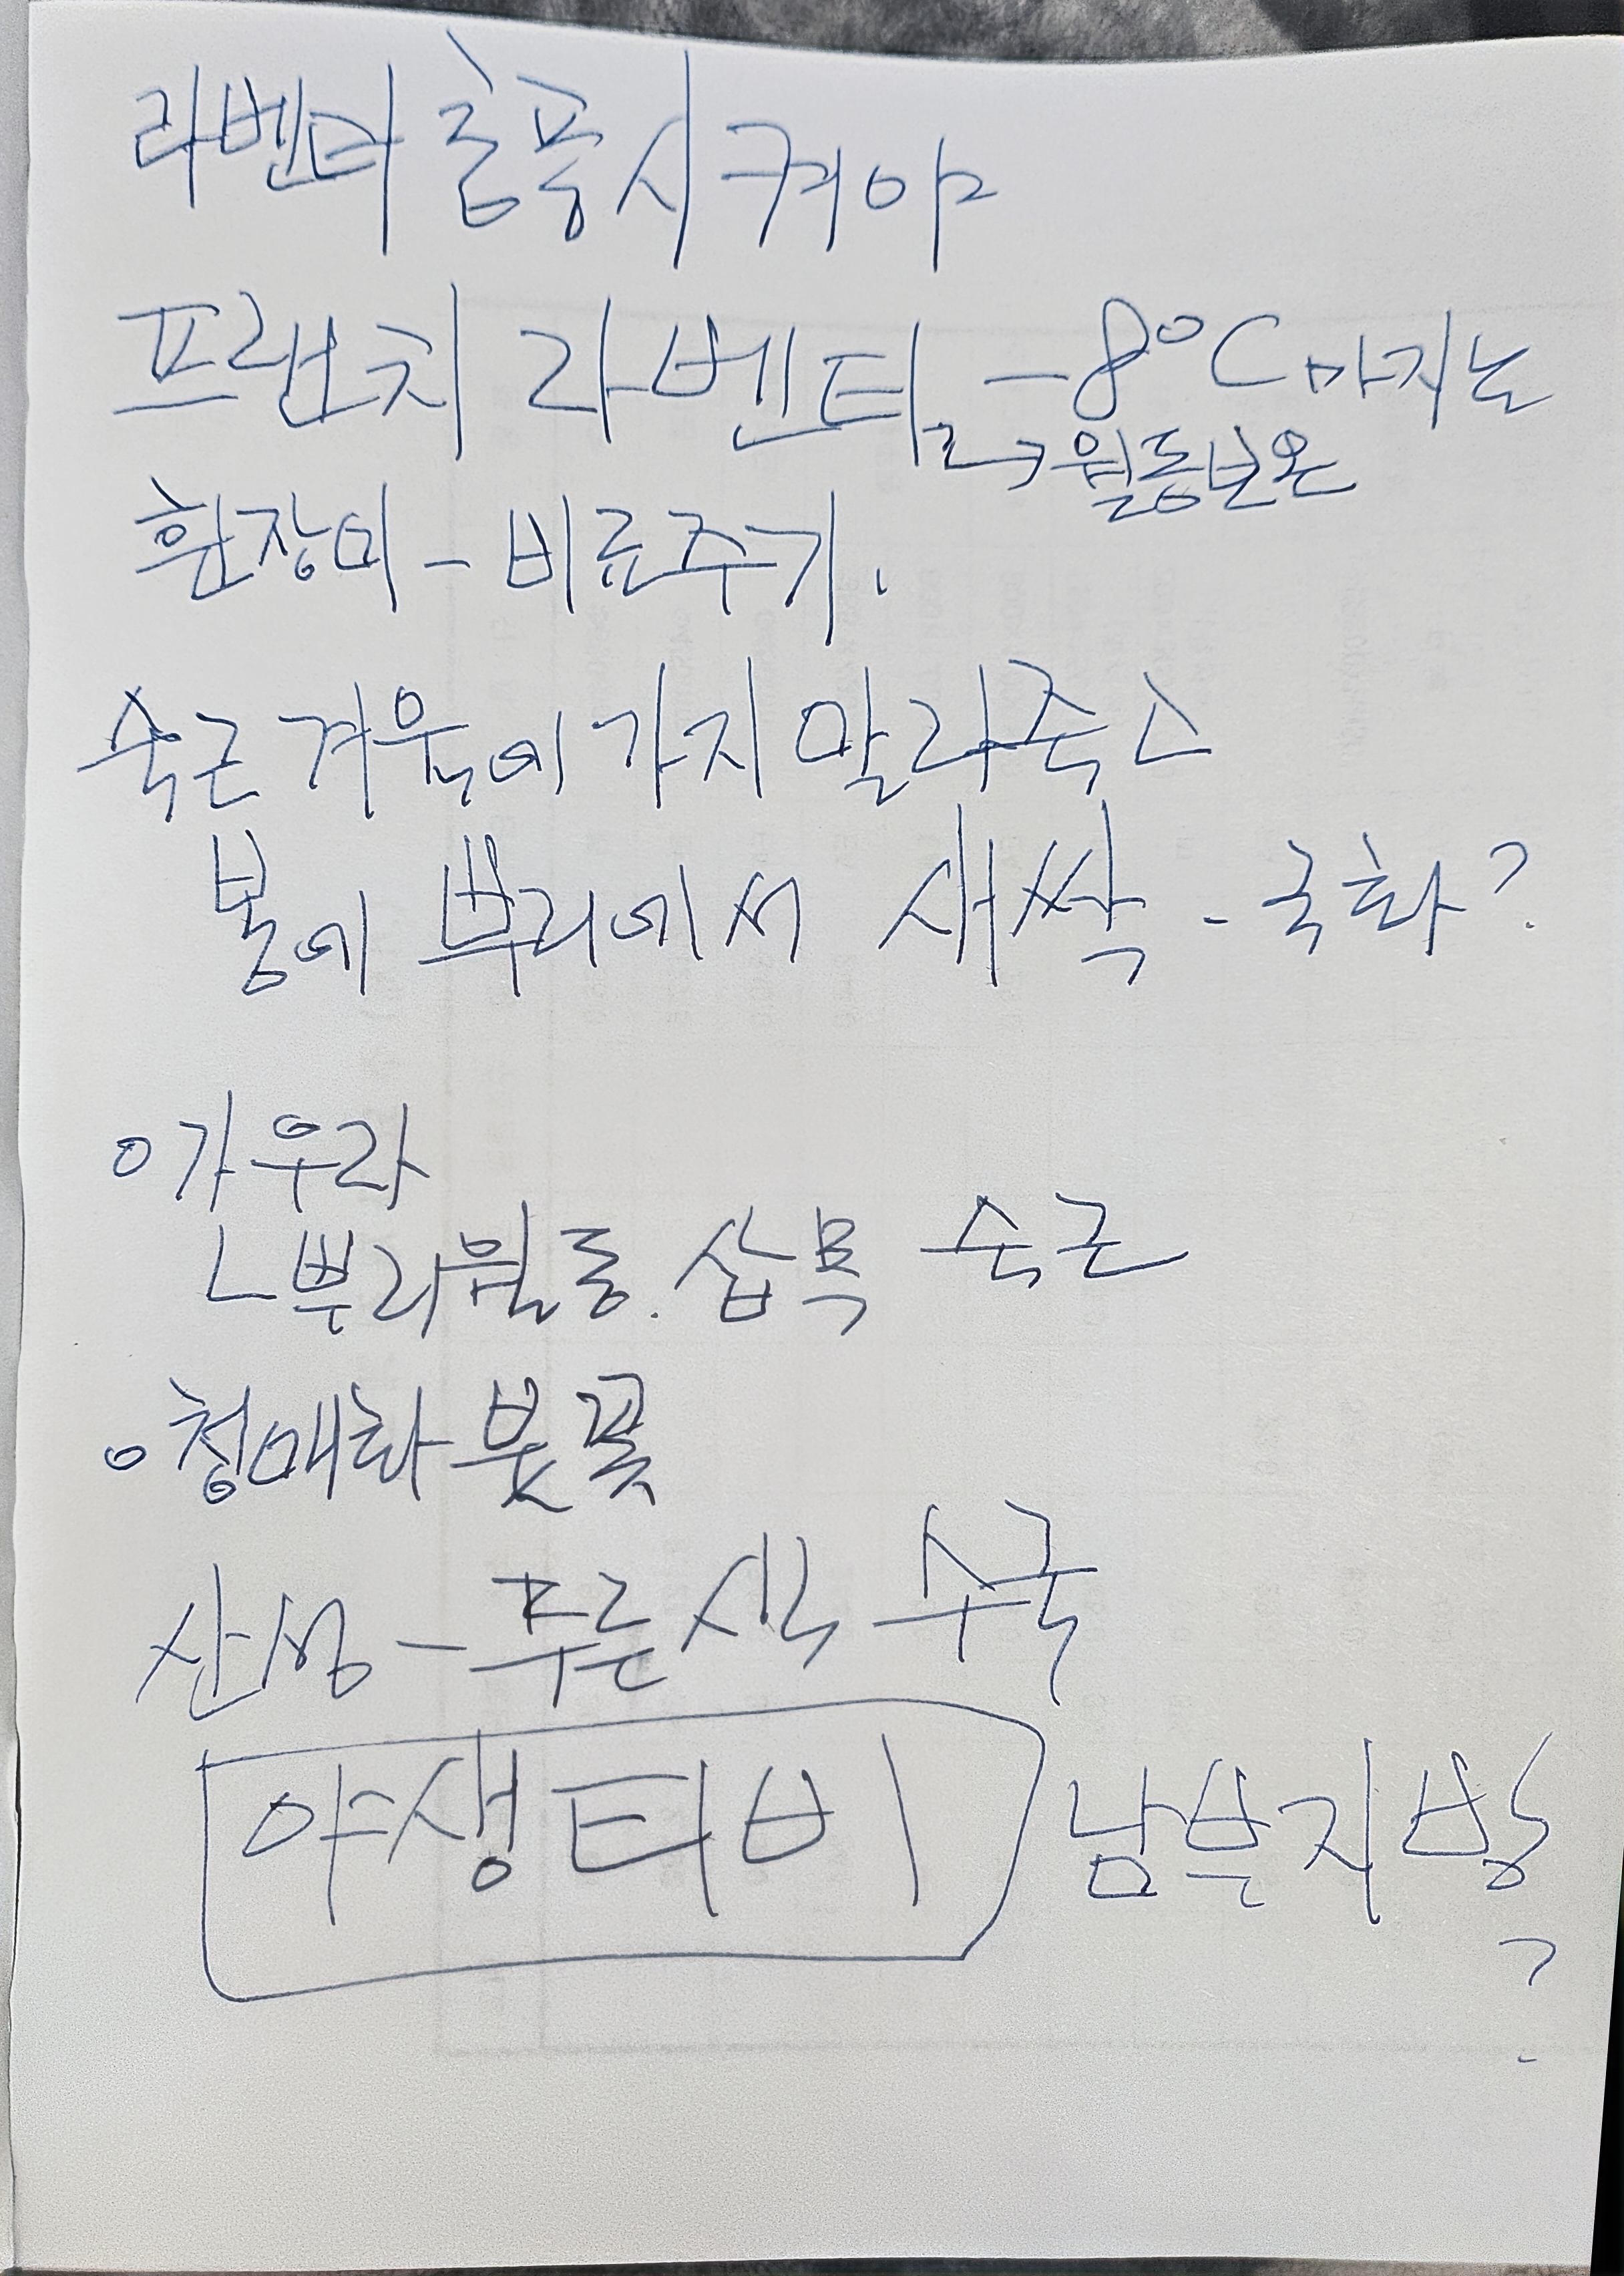 라벤더 통풍시켜야
프랜치 라벤더 -8°C 까지는
→ 월동보온
흰장미 - 비료주기.
숙근 겨울에 가지 말라죽고
봄에 뿌리에서 새싹 - 국화?
○ 가우라
ㄴ뿌리월동. 삽목 숙근
○ 청매화붓꽃
산성 - 푸른색 수국
야생티비 남부지방
?